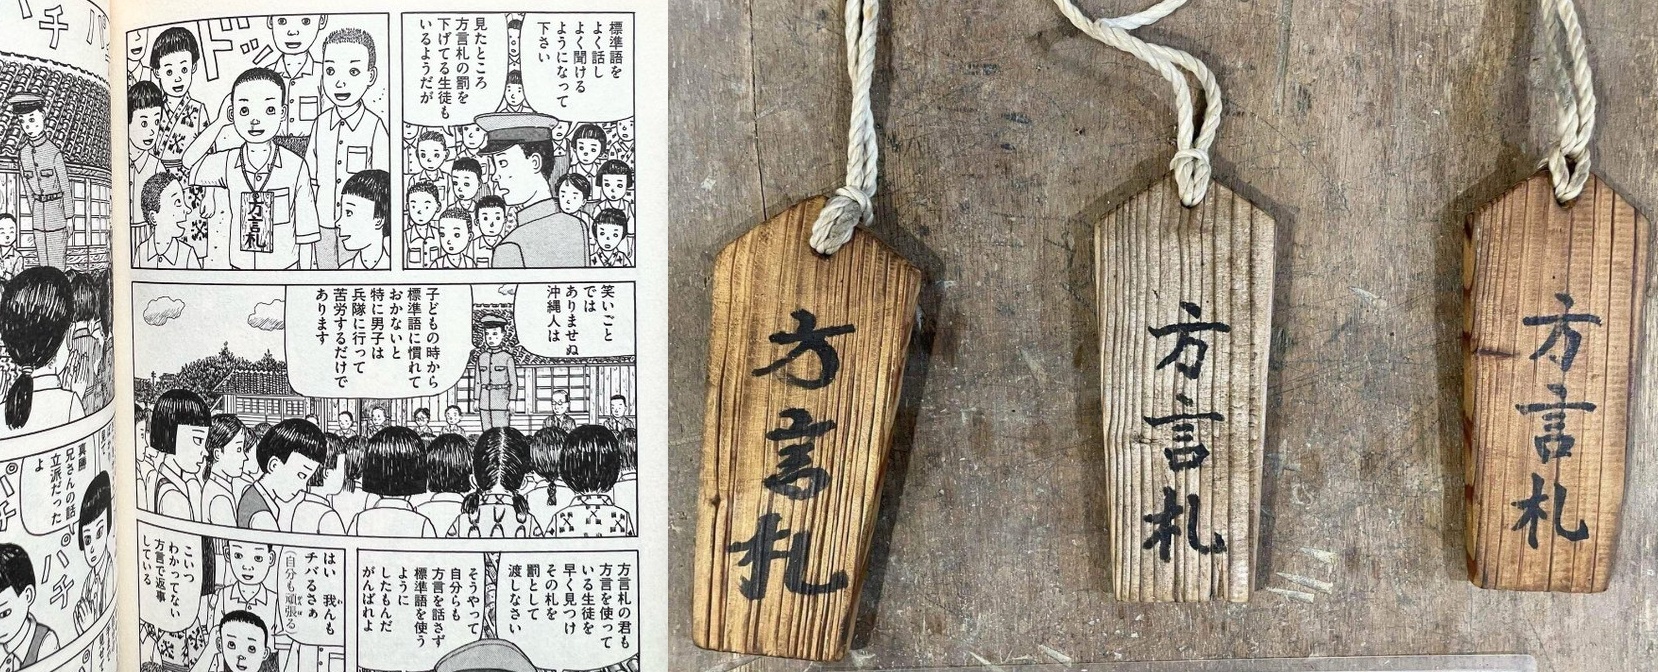 パチ
標準語を
よく話し
よく聞ける
ようになって
下さい
見たところ
方言札の罰を
下げてる生徒も
いるようだが
ドッ
方言札
笑いごと
では
ありませぬ
沖縄人は
子どもの時から
標準語に慣れて
おかないと
特に男子は
兵隊に行って
苦労するだけで
あります
方言札の君も
方言を使って
いる生徒を
早く見つけ
その札を
罰として
渡しなさい
そうやって
自分らも
方言を話さず
標準語を使う
ように
したもんだ
がんばれよ
はい 我んも
チバるさぁ
(自分も頑張る)
こいつ
わかってない
方言で返事
している
真勝
兄さんの話
立派だった
よ
パチ
方言札
方言札
方言札